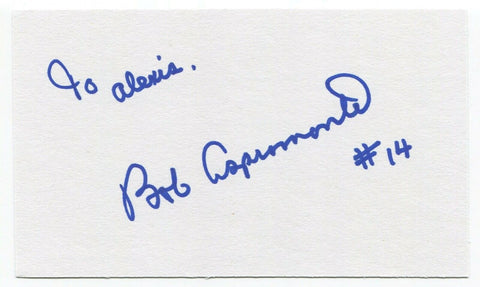 To alexis.
Bob Aspromonte
#14